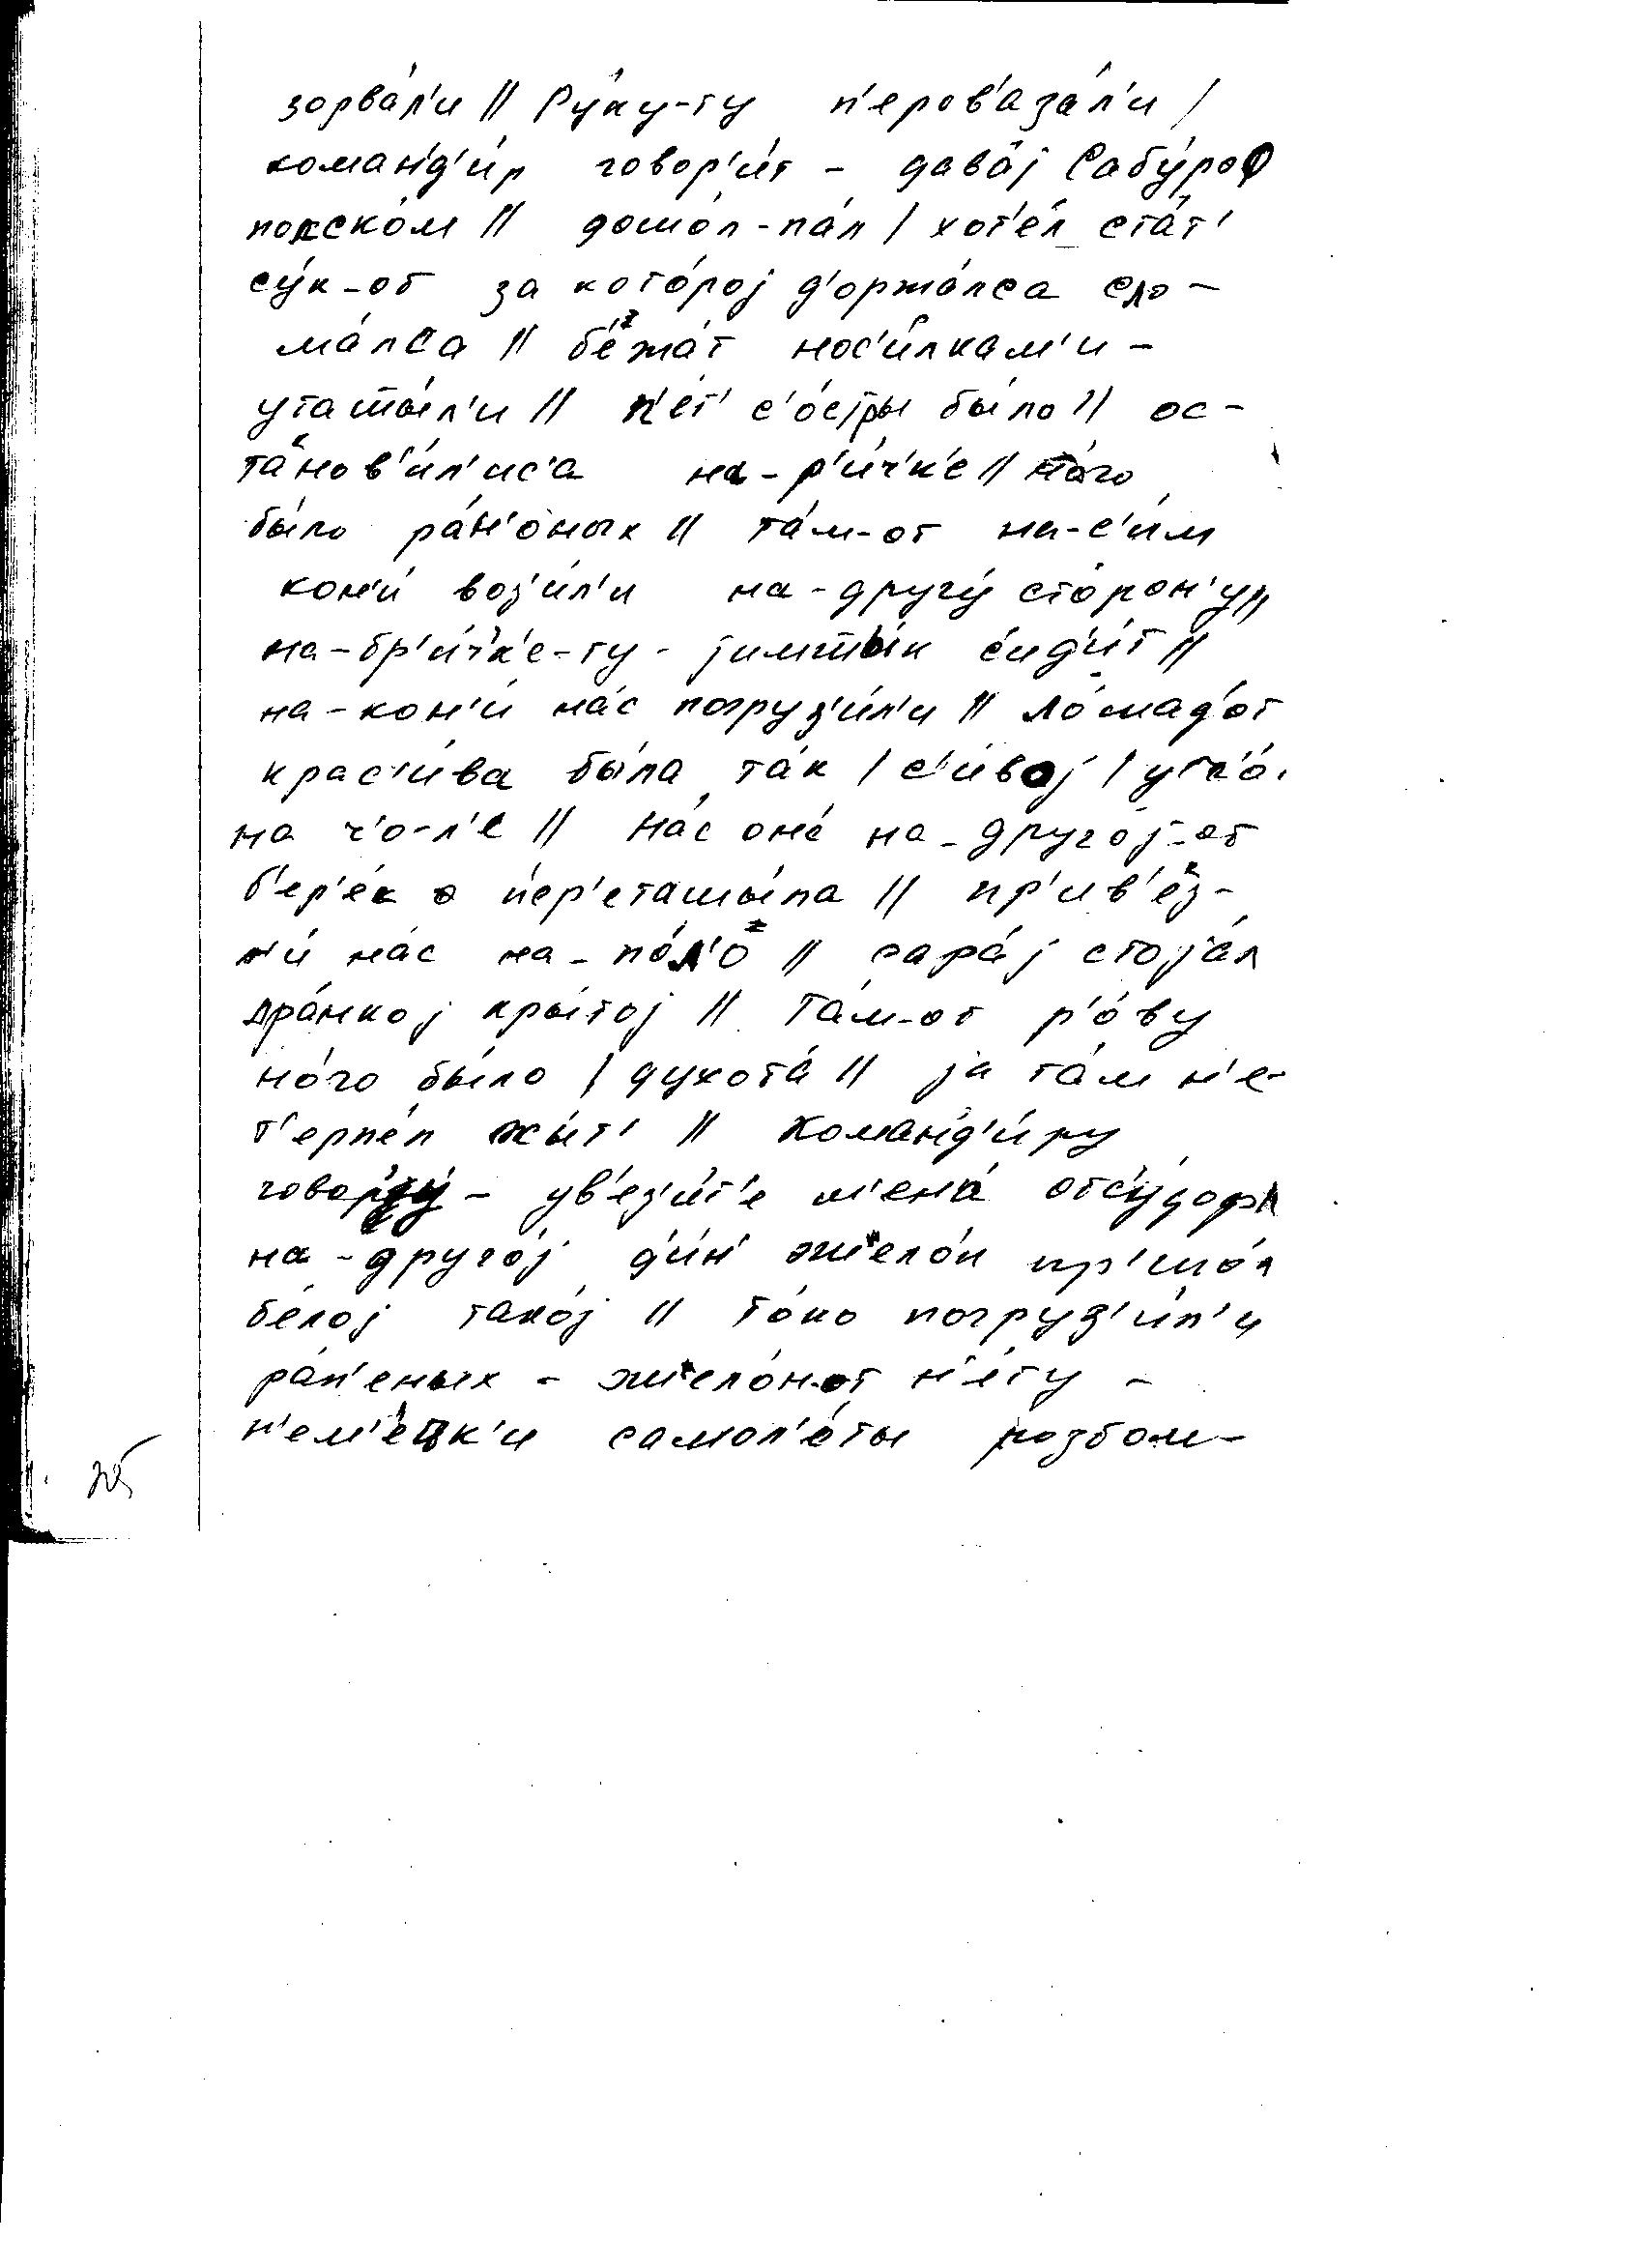 зорва́л'и || Ру́ку-ту п'еров'аза́л'и /
команд'и́р говор'и́т - дава́j Сабу́роф
полско́м || дошо́л-па́л / хот'е́л ста́т'
су́к-от за кото́роj д'оржа́лса сло-
ма́лса || бежа́т нос'и́лкам'и -
уташы́л'и || п'е́т' с'о́стры бы́ло || ос-
танов'и́л'ис'а на-р'и́ч'к'е || но́го
бы́ло ра́н'оных || та́м-от на-с'и́м
кон'и́ воз'и́л'и на-другу́ сто́рон'у ||
на-бр'и́ч'к'е-ту - jимшы́к с'ид'и́т ||
на-кон'и́ на́с погруз'и́л'и || ло́шад'от
крас'и́ва была́ та́к / с'и́воj / ут'о́-
на ч'о-л'е || на́с она́ на-друго́j-от
б'ер'е́к п'ер'еташы́ла || пр'ив'ез-
л'и́ на́с на-по́л'о || сара́j стоjа́л
дра́нкоj кры́тоj || Та́м-от р'о́ву
но́го бы́ло / духота́ || jа та́м н'е-
т'ерпе́л жы́т' || Команд'и́ру
говор'у́ - ув'ез'и́т'е м'ен'а́ отс'у́доф
на-друго́j д'и́н' эшело́н пр'ишо́л
бе́лоj тако́j || то́ко погруз'и́л'и
ра́н'еных - эшело́н-от н'е́ту -
н'ем'е́цк'и самол'о́ты розбом-
25